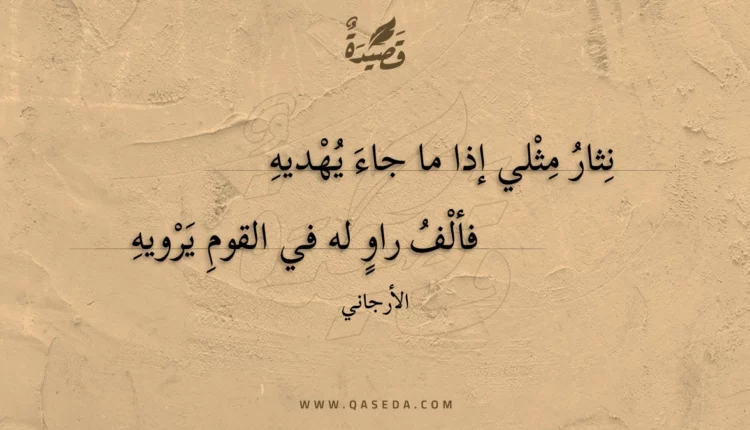 قَصِيدَةٌ
نِثارُ مِثْلي إذا ما جاءَ يُهْديهِ
فألْفُ راوٍ له في القومِ يَرْويهِ
الأرجاني
WWW.QASEDA.COM